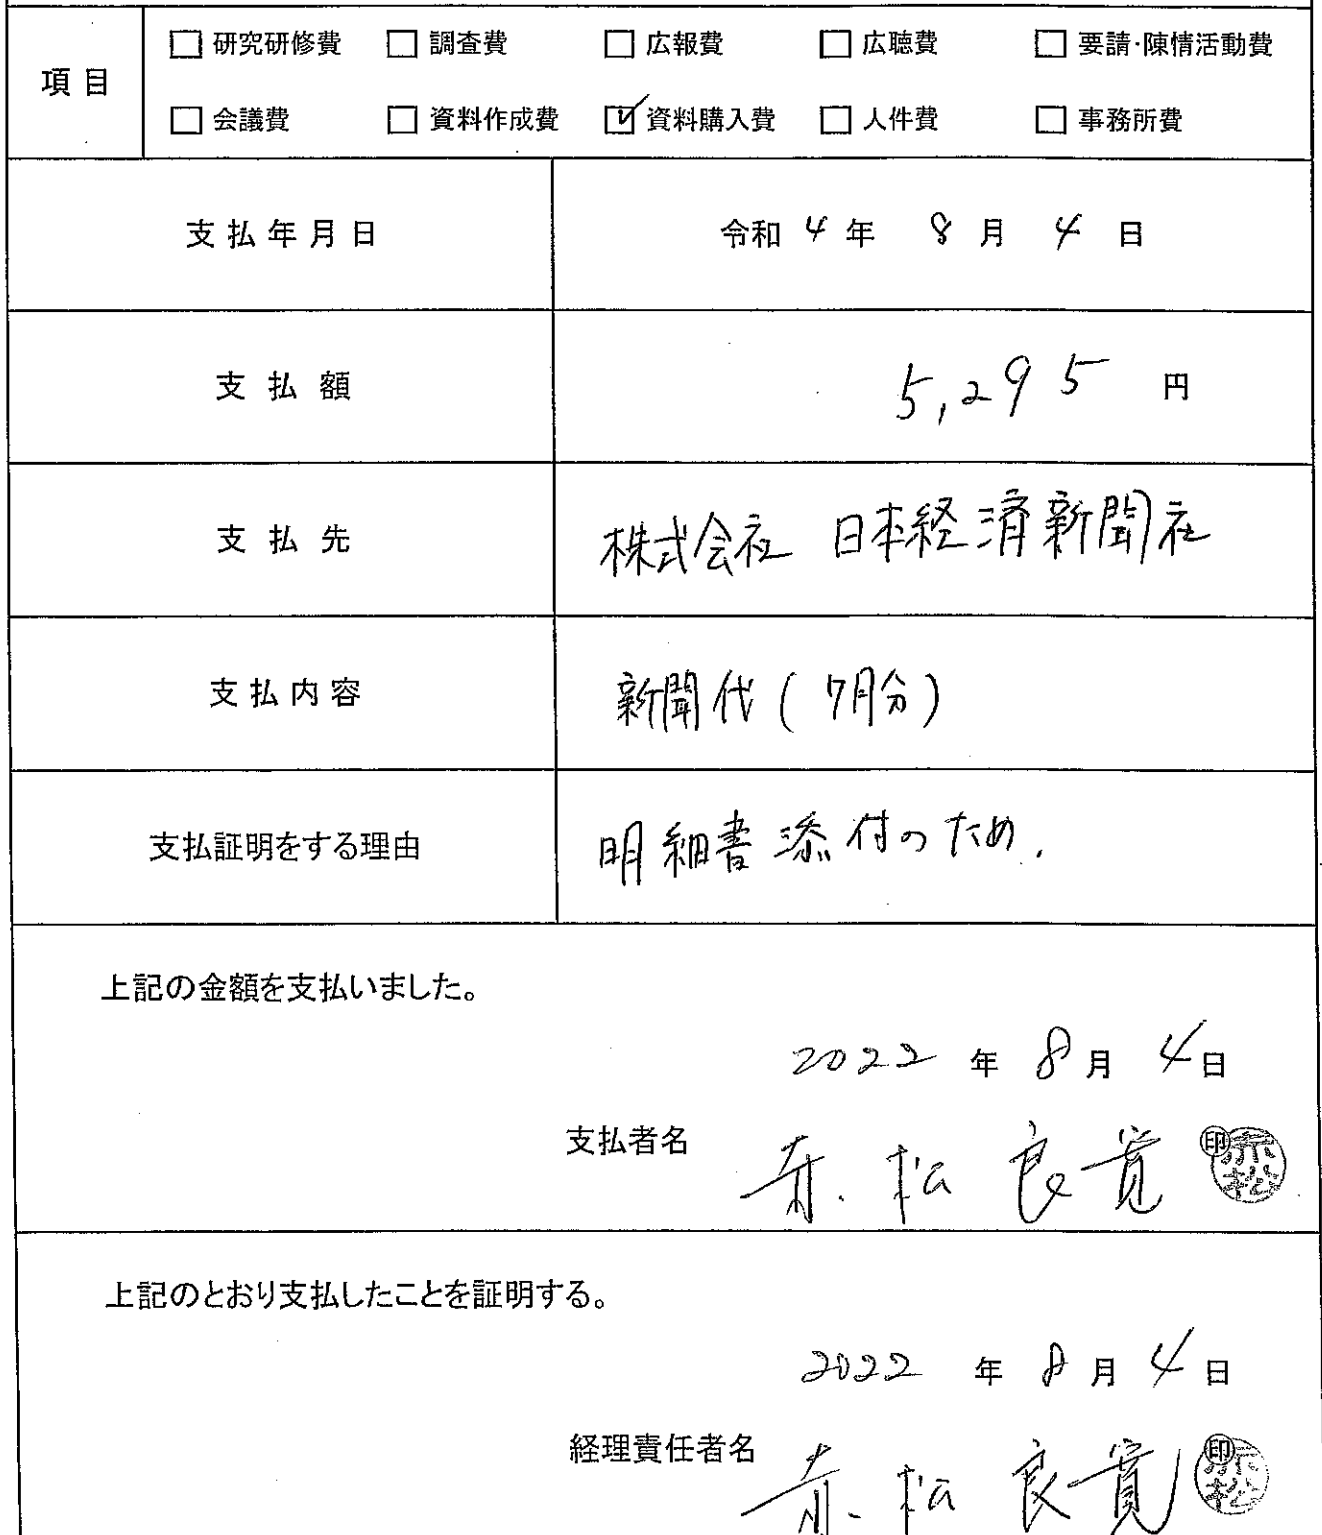 項目
□ 研究研修費 □ 調査費 □ 広報費 □ 広聴費 □ 要請・陳情活動費
□ 会議費 □ 資料作成費 ☑ 資料購入費 □ 人件費 □ 事務所費
支払年月日 令和 4 年 8 月 4 日
支払額 5,295 円
支払先 株式会社 日本経済新聞社
支払内容 新聞代(7月分)
支払証明をする理由 明細書添付のため.
上記の金額を支払いました。
2022 年 8 月 4 日
支払者名 赤松 良寛 印 赤松
上記のとおり支払したことを証明する。
2022 年 8 月 4 日
経理責任者名 赤松 良寛 印 赤松